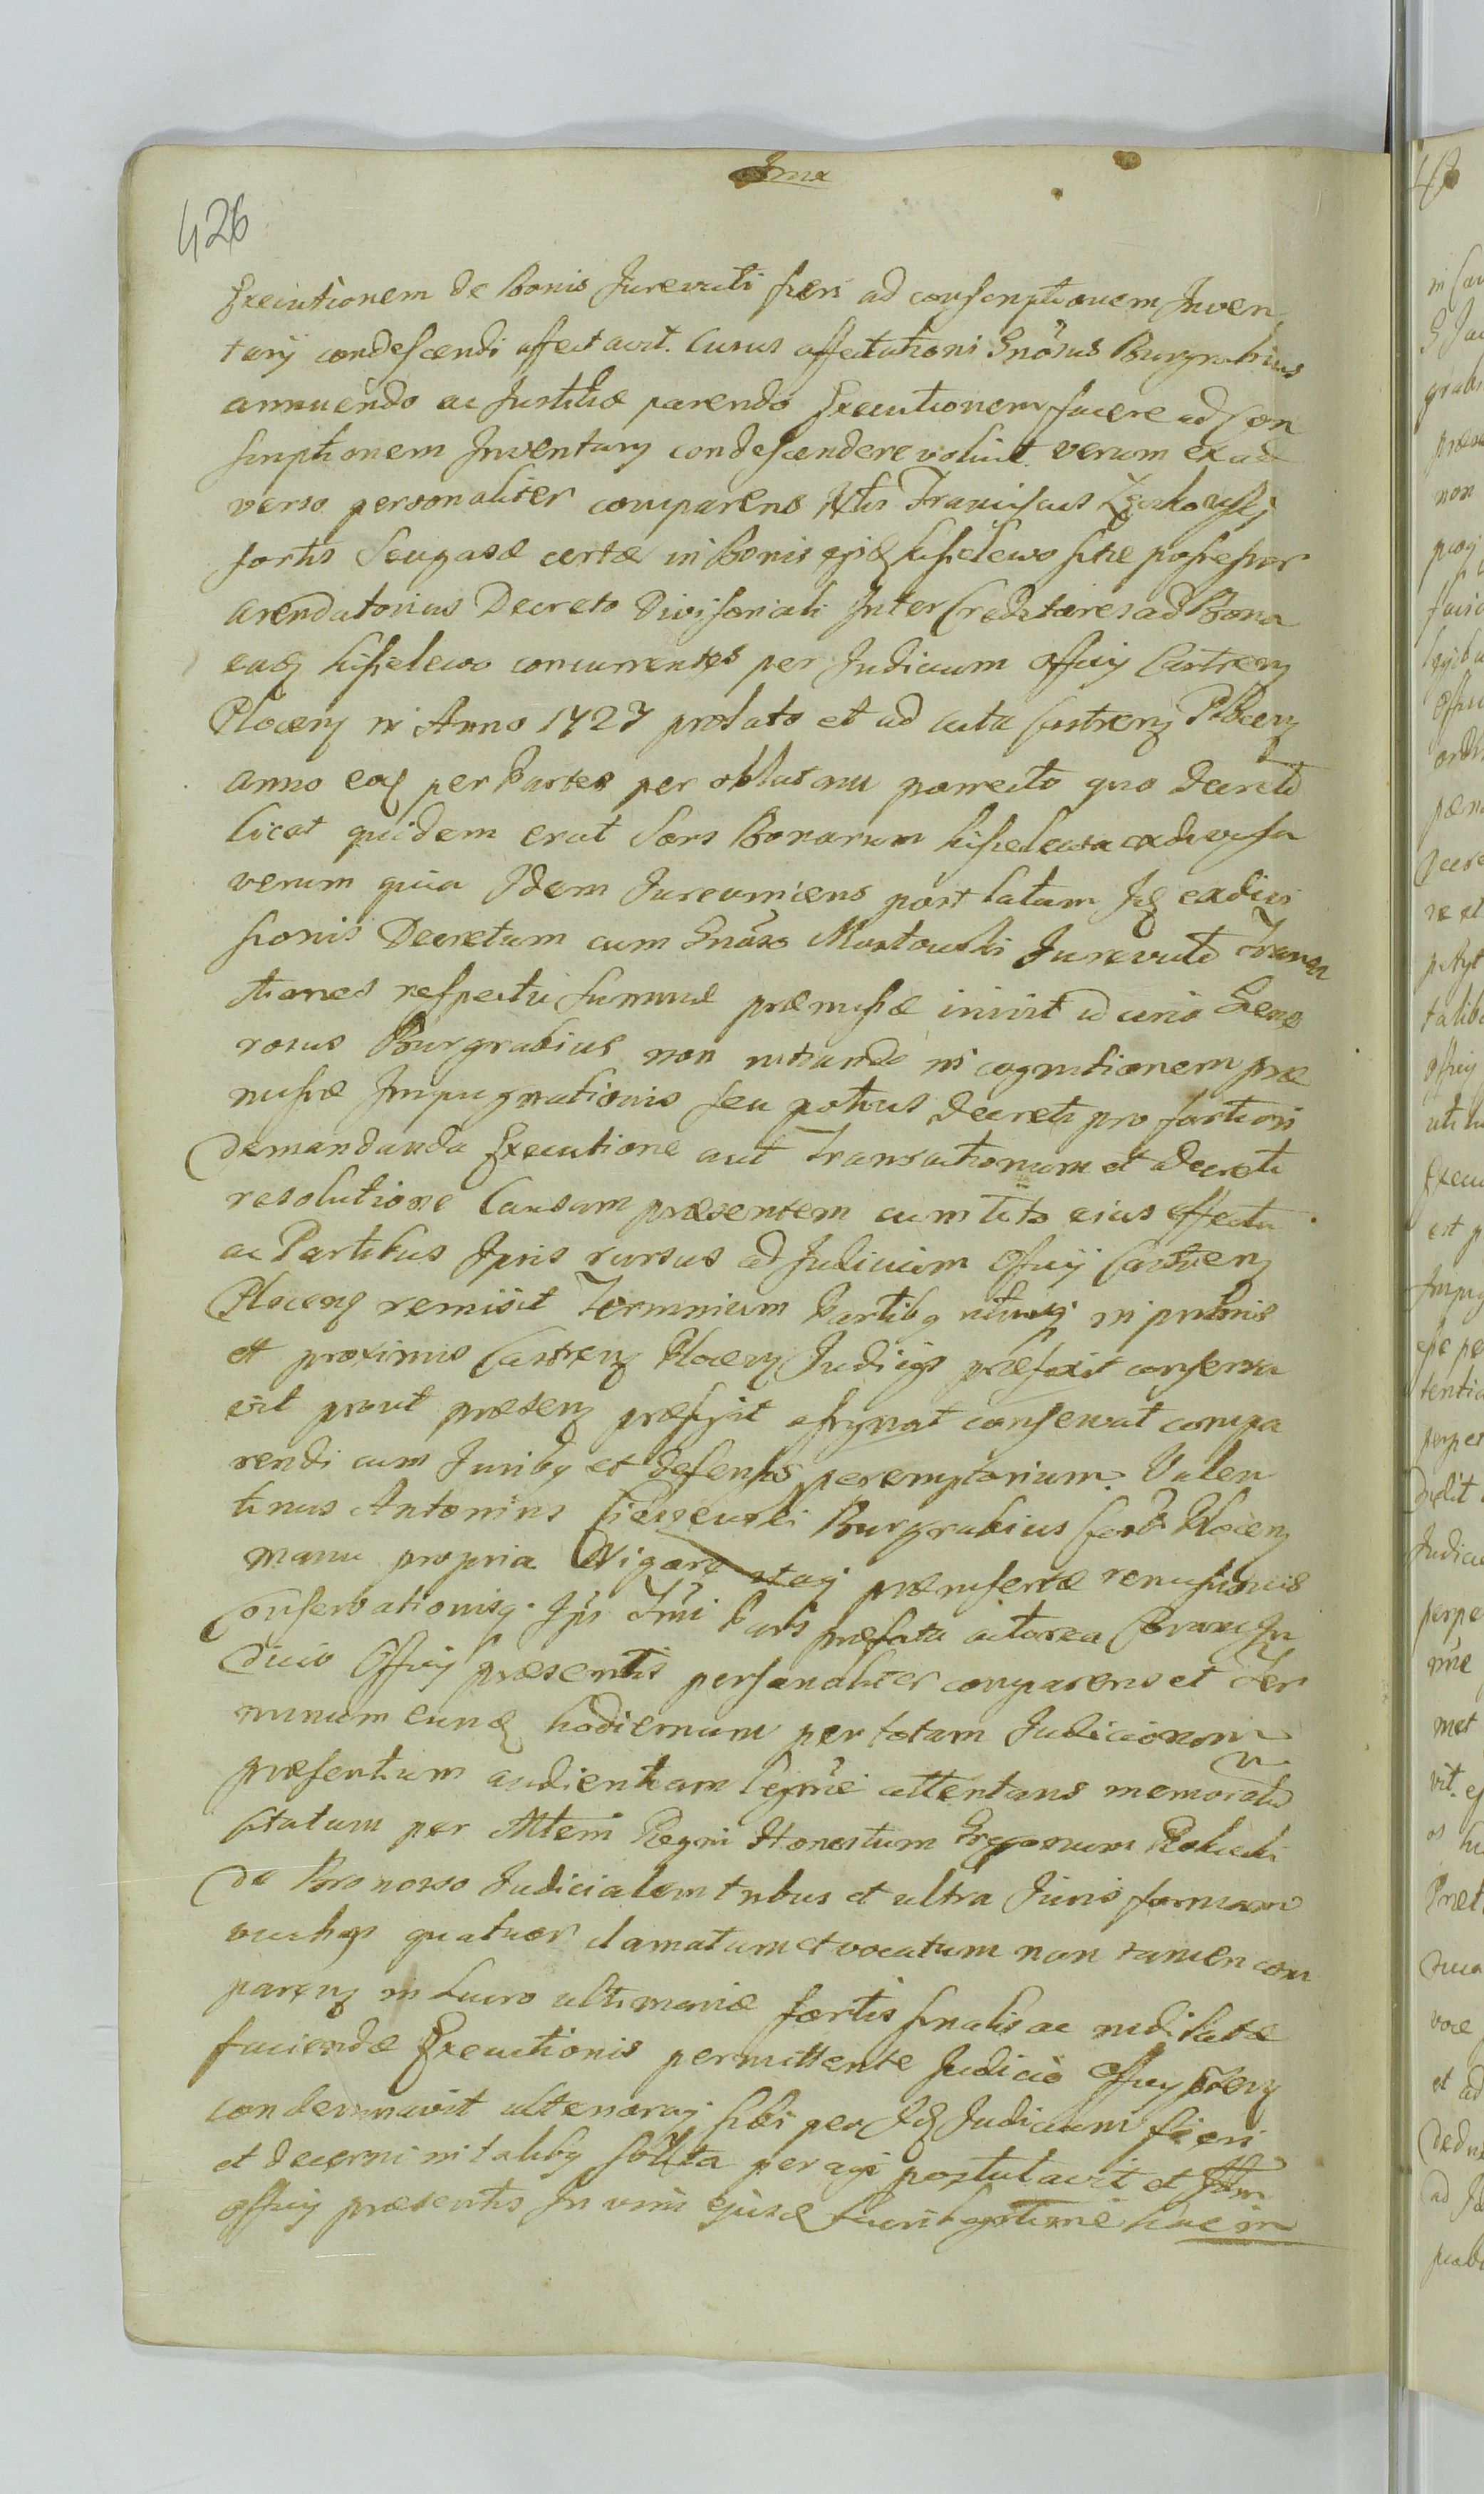 426
Executionem de Bonis Jurevicti fieri ad conscriptionem Inven
tarij condescendi affectavit. Cuius affectationi Gnosus Burgrabius
annuendo ac Justitiæ parendo Executionem facere ad Con
scriptionem Inventarij condescendere voluit. verum ex ad
verso personaliter comparens Mtus Franciscus
sortis Seu partæ certæ in Bonis sitæ possessor
arendatorius Decreto Divisoriali Inter Creditores ad Bona
eadq concurrentes per Judicium Officij Castren
Plocen in Anno 1727 prolato et ad acta Castren Plocen
anno eoq per Partes per oblatam porrecto quo Decreto
licet quidem erat Sors Bonorum exdivisa
verum quia Idem Jurevincens post latum Idq exdivi
sionis Decretum cum Gnoso Mostowski Jurevicto Transa
ctiones respectu summæ præmissæ inivit ideirio Gene
rosus Burgrabius non intrando in cognitionem præ
missæ Impugnationis seu potius Decreti pro fortiori
Demandanda Executione aut transactionum et Decreti
resolutione Causam præsentem cum toto eius effectu
ac Partibus Ipsis rursus ad Judicium Officij Castren
Plocens remisit Terminum Partibq utrisq in primis
et proximis Castren Plocen Judicijs præfixit conserva
vit prout præsen præfigit assignat conservat compa
rendi cum Juribq et defensis peremptorium. Valen
tinus Antonius Burgrabius Cast Plocen
manu propria Vigore itaq præinsertæ remissionis
Conservationisq Ipsius Tmi Pars præfata actorea Coram Ju
dicio Officij præsentis personaliter comparens et Ter
minum eundq hodiernum per totam Judiciorum
præsentium audientiam legme attentans memoratu
citatum per Mtem Regni Honestum Gregorium
de Bronowo Judicialem tribus et ultra Juris formam
vicibq quatuor clamatum et vocatum non tamen com
paren in Lucro ultimariæ fortis finalis ac meditatæ
faciendæ Executionis permittente Judicio Officij præsen
condemnavit ulteriorq sibi per Idq Judicium fieri
et decerni in talibq solita peragi postulavit et Jtm
officij præsentis In vim ejusd fuerit legitime hac in